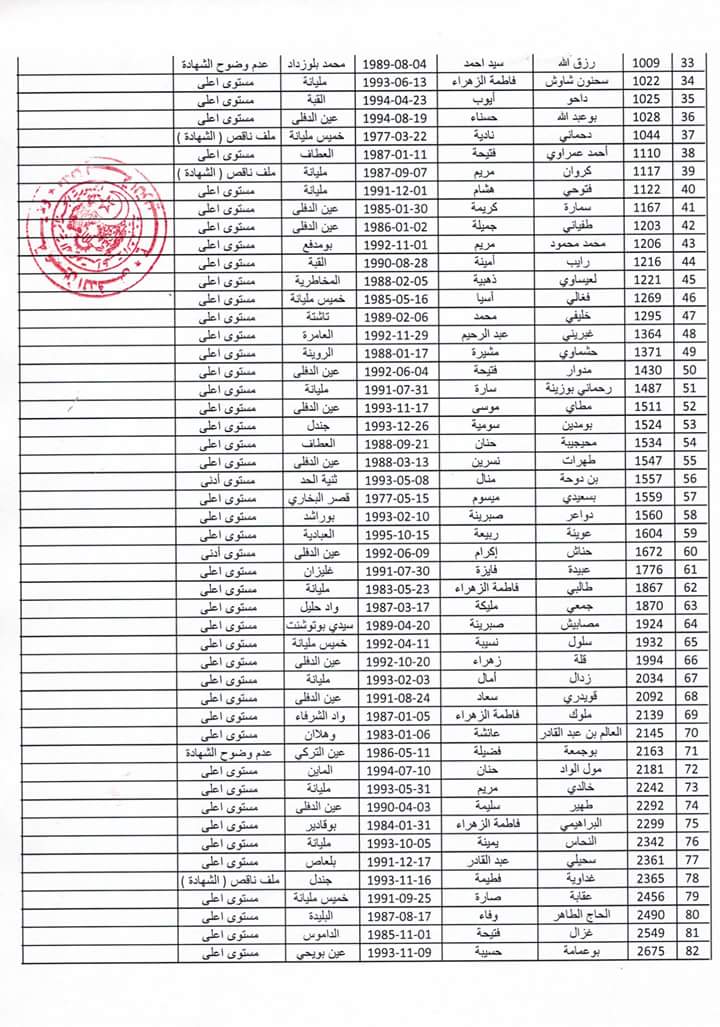 33 1009 رزق الله سيد احمد 1989-08-04 محمد بلوزداد عدم وضوح الشهادة
34 1022 سحنون شاوش فاطمة الزهراء 1993-06-13 مليانة مستوى اعلى
35 1025 داحو أيوب 1994-04-23 القبة مستوى اعلى
36 1028 بوعبد الله حسناء 1994-08-19 عين الدفلى مستوى اعلى
37 1044 دحماني نادية 1977-03-22 خميس مليانة ملف ناقص ( الشهادة )
38 1110 أحمد عمراوي فتيحة 1987-01-11 العطاف مستوى اعلى
39 1117 كروان مريم 1987-09-07 مليانة ملف ناقص ( الشهادة )
40 1122 فتوحي هشام 1991-12-01 مليانة مستوى اعلى
41 1167 سمارة كريمة 1985-01-30 عين الدفلى مستوى اعلى
42 1203 طفياني جميلة 1986-01-02 عين الدفلى مستوى اعلى
43 1206 محمد محمود مريم 1992-11-01 بومدفع مستوى اعلى
44 1216 رايب أمينة 1990-08-28 القبة مستوى اعلى
45 1221 لعيساوي ذهبية 1988-02-05 المخاطرية مستوى اعلى
46 1269 فغالي أسيا 1985-05-16 خميس مليانة مستوى اعلى
47 1295 خليفي محمد 1989-02-06 تاشتة مستوى اعلى
48 1364 غبريني عبد الرحيم 1992-11-29 العامرة مستوى اعلى
49 1371 حشماوي مشيرة 1988-01-17 الروينة مستوى اعلى
50 1430 مدوار فتيحة 1992-06-04 عين الدفلى مستوى اعلى
51 1487 رحماني بوزينة سارة 1991-07-31 مليانة مستوى اعلى
52 1511 مطاي موسى 1993-11-17 عين الدفلى مستوى اعلى
53 1524 بومدين سومية 1993-12-26 جندل مستوى اعلى
54 1534 محيجيبة حنان 1988-09-21 العطاف مستوى اعلى
55 1547 طهرات نسرين 1988-03-13 عين الدفلى مستوى اعلى
56 1557 بن دوحة منال 1993-05-08 ثنية الحد مستوى أدنى
57 1559 بسعيدي ميسوم 1977-05-15 قصر البخاري مستوى اعلى
58 1560 دواعر صبرينة 1993-02-10 بوراشد مستوى اعلى
59 1604 عوينة ربيعة 1995-10-15 العبادية مستوى اعلى
60 1672 حناش إكرام 1992-06-09 عين الدفلى مستوى أدنى
61 1776 عبيدة فايزة 1991-07-30 غليزان مستوى اعلى
62 1867 طالبي فاطمة الزهراء 1983-05-23 مليانة مستوى اعلى
63 1870 جمعي مليكة 1987-03-17 واد حليل مستوى اعلى
64 1924 مصابيش صبرينة 1989-04-20 سيدي بوتوشنت مستوى اعلى
65 1932 سلول نسيبة 1992-04-11 خميس مليانة مستوى اعلى
66 1994 قلة زهراء 1992-10-20 عين الدفلى مستوى اعلى
67 2034 زدال أمال 1993-02-03 مليانة مستوى اعلى
68 2092 قويدري سعاد 1991-08-24 عين الدفلى مستوى اعلى
69 2139 ملوك فاطمة الزهراء 1987-01-05 واد الشرفاء مستوى اعلى
70 2145 العالم بن عبد القادر عائشة 1983-01-06 وهلاان مستوى اعلى
71 2163 بوجمعة فضيلة 1986-05-11 عين التركي عدم وضوح الشهادة
72 2181 مول الواد حنان 1994-07-10 الماين مستوى اعلى
73 2242 خالدي مريم 1993-05-31 مليانة مستوى اعلى
74 2292 طهير سليمة 1990-04-03 عين الدفلى مستوى اعلى
75 2299 البراهيمي فاطمة الزهراء 1984-01-31 بوقادير مستوى اعلى
76 2342 النحاس يمينة 1993-10-05 مليانة مستوى اعلى
77 2361 سحيلي عبد القادر 1991-12-17 بلعاص مستوى اعلى
78 2365 غداوية فطيمة 1993-11-16 جندل ملف ناقص ( الشهادة )
79 2456 عقابة صارة 1991-09-25 خميس مليانة مستوى اعلى
80 2490 الحاج الطاهر وفاء 1987-08-17 البليدة مستوى اعلى
81 2549 غزال فتيحة 1985-11-01 الداموس مستوى اعلى
82 2675 بوعمامة حسيبة 1993-11-09 عين بويحي مستوى اعلى